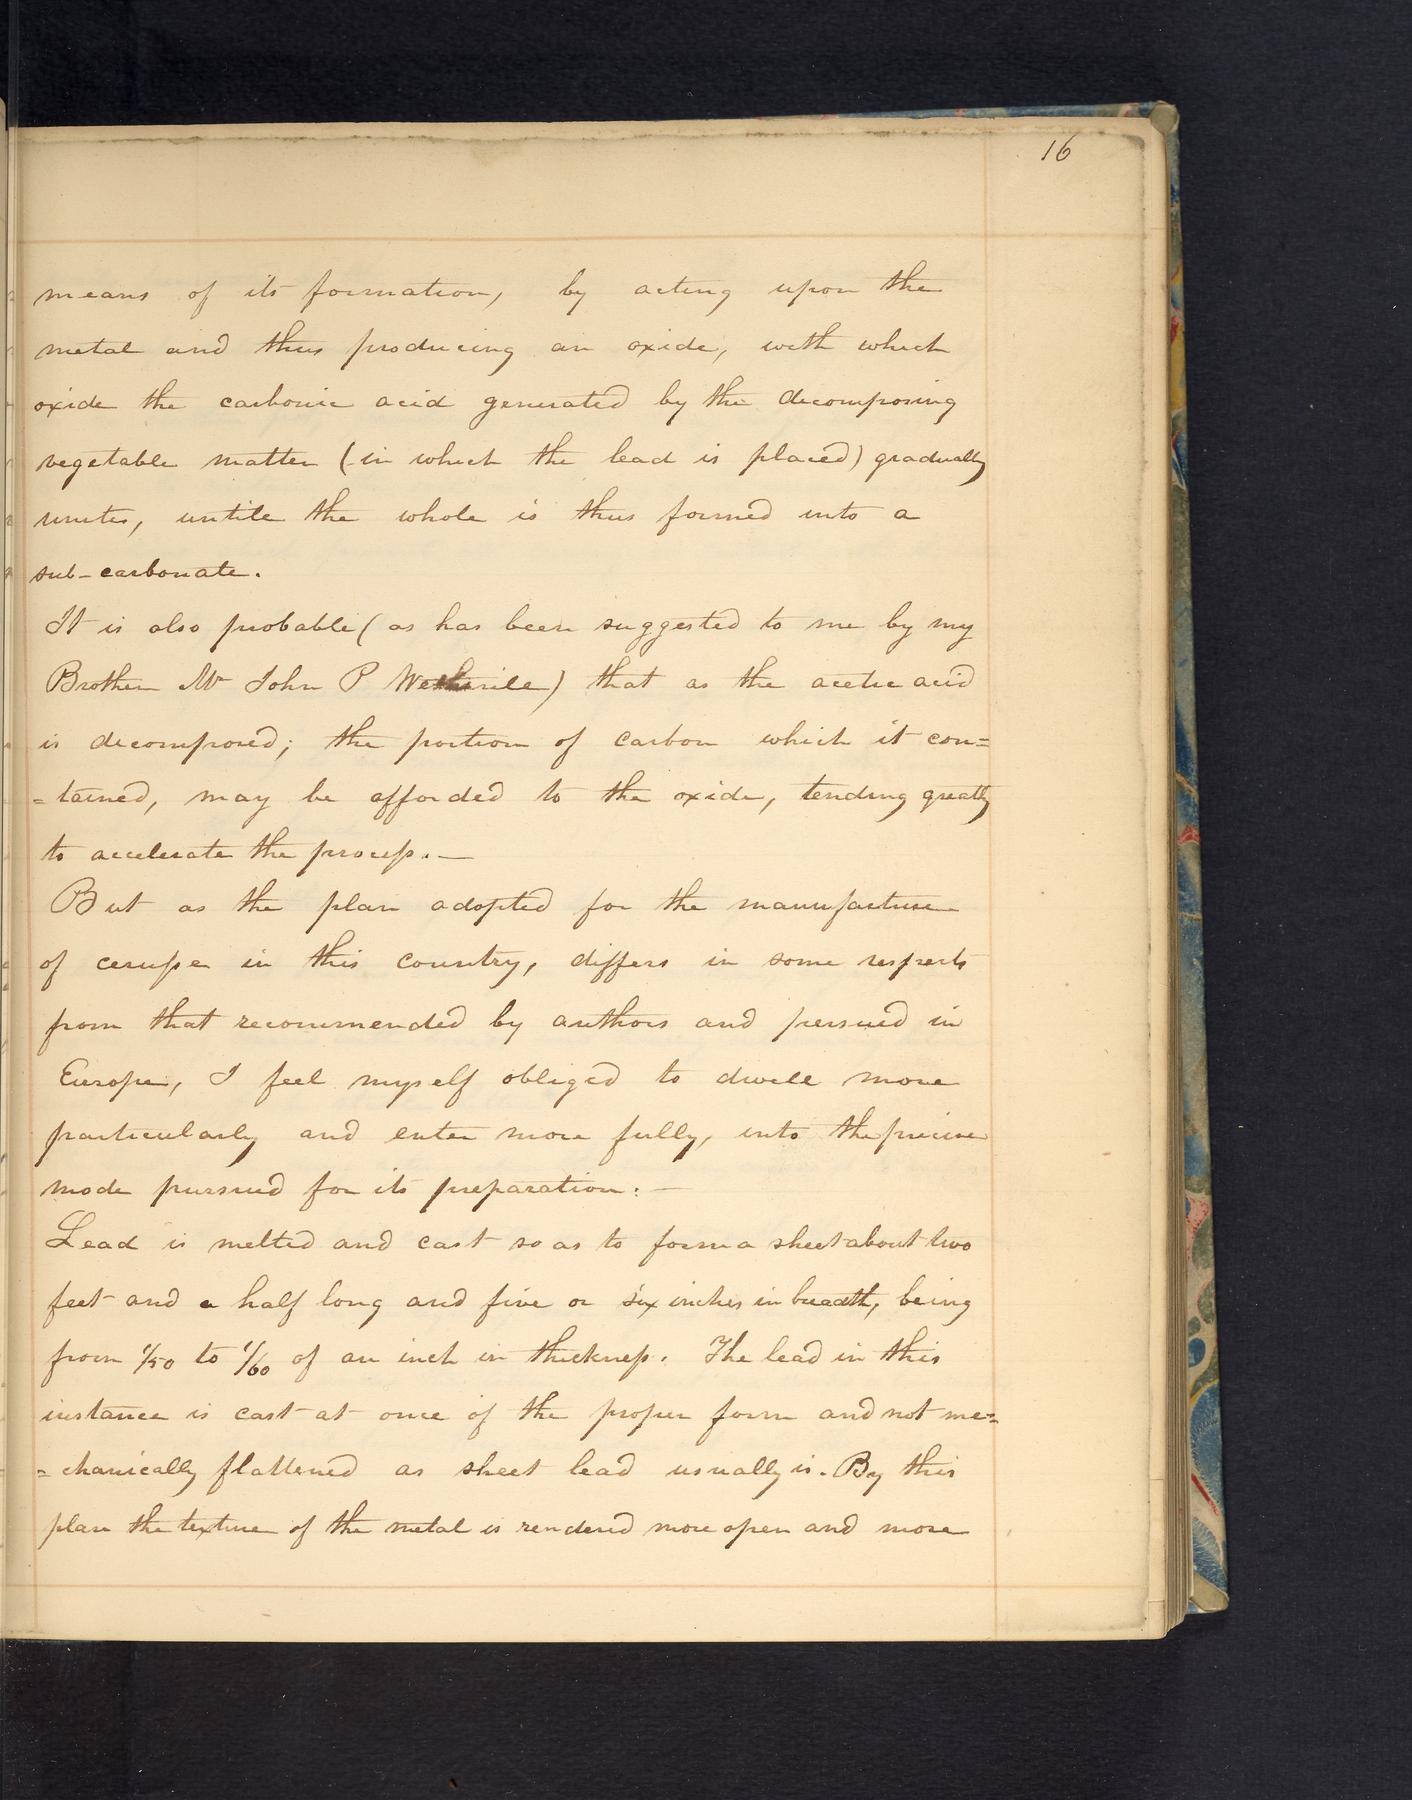 16
means of its formation, by acting upon the
metal and thus producing an oxide, with which
oxide the carbonic acid generated by the decomposing
vegetable matter (in which the lead is placed) gradually
unites, untill the whole is thus formed into a
sub-carbonate.
It is also probable (as has been suggested to me by my
Brother Mr John P Wetherill) that as the acetic acid
is decomposed; the portion of carbon which it con=
=tained, may be afforded to the oxide, tending greatly
to accelerate the process.—
But as the plan adopted for the manufacture
of ceruse in this country, differs in some respects
from that recommended by authors and persued in
Europe, I feel myself obliged to dwell more
particularly and enter more fully, into the precise
mode pursued for its preparation:—
Lead is melted and cast so as to form a sheet about two
feet and a half long and five or six inches in breadth, being
from 1/50 to 1/60 of an inch in thickness. The lead in this
instance is cast at once of the proper form and not me=
=chanically flattened as sheet lead usually is. By this
plan the texture of the metal is rendered more open and more